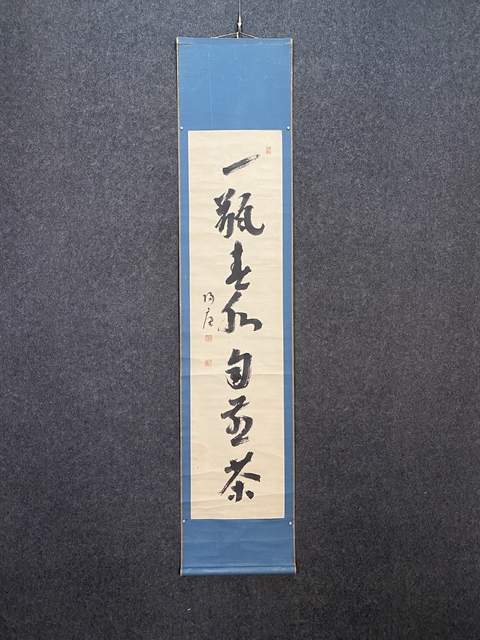 一瓶春水自煎茶